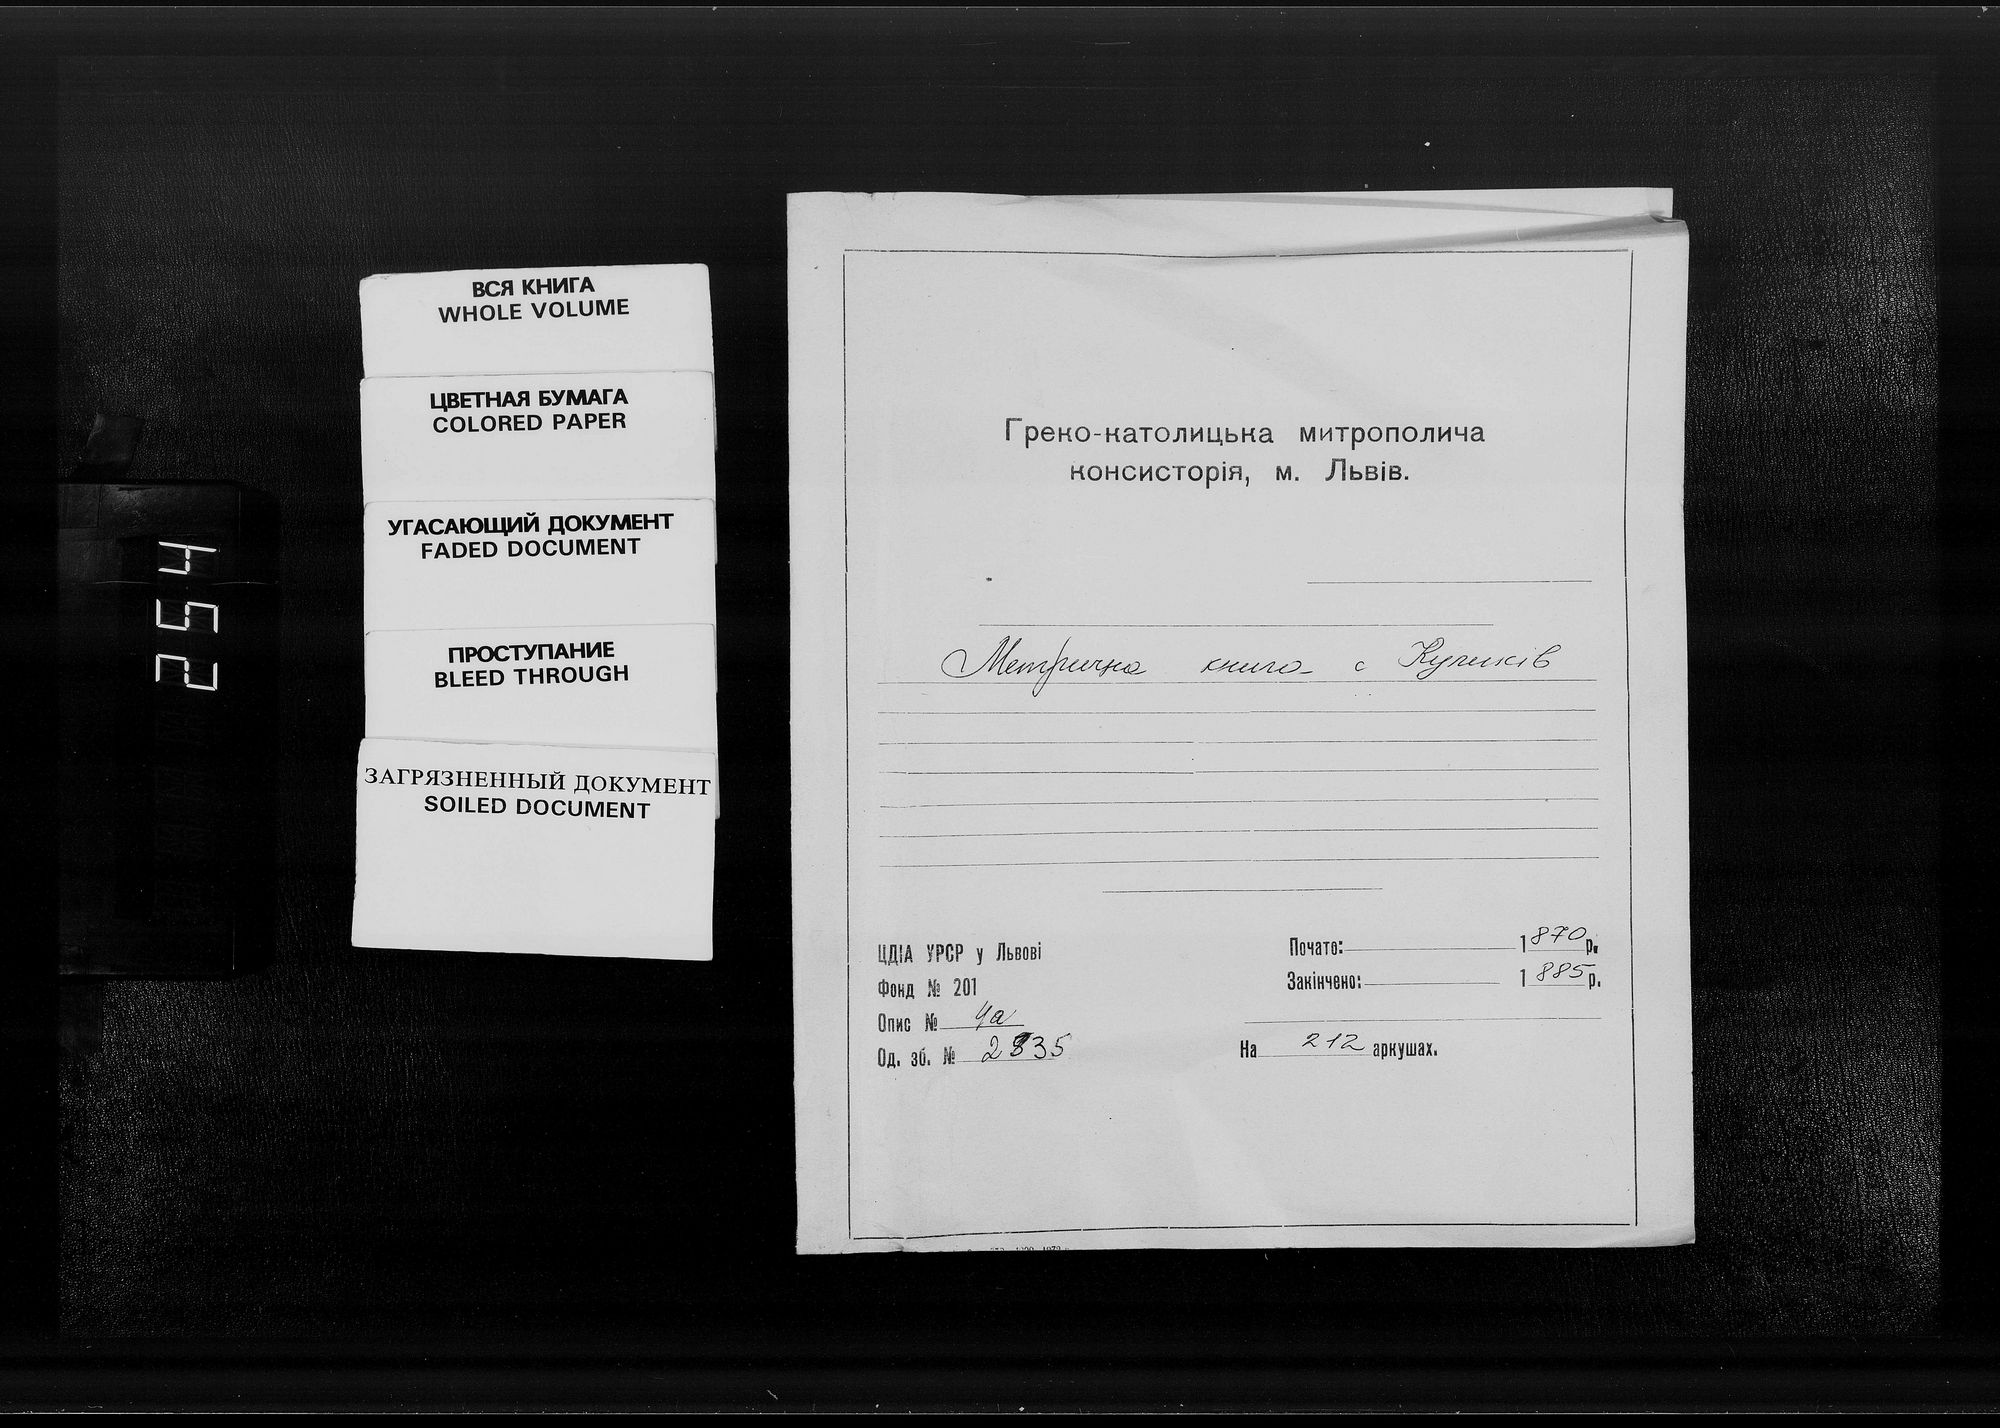 ВСЯ КНИГА
WHOLE VOLUME
ЦВЕТНАЯ БУМАГА
COLORED PAPER
УГАСАЮЩИЙ ДОКУМЕНТ
FADED DOCUMENT
ПРОСТУПАНИЕ
BLEED THROUGH
ЗАГРЯЗНЕННЫЙ ДОКУМЕНТ
SOILED DOCUMENT
254
Греко-католицька митрополича
консисторія, м. Львів.
Метрична книга с
ЦДІА УРСР у Львові
Фонд № 201
Опис № 4а
Од. зб. №
Почато: 1870 р.
Закінчено: 1885 р.
На 212 аркушах.